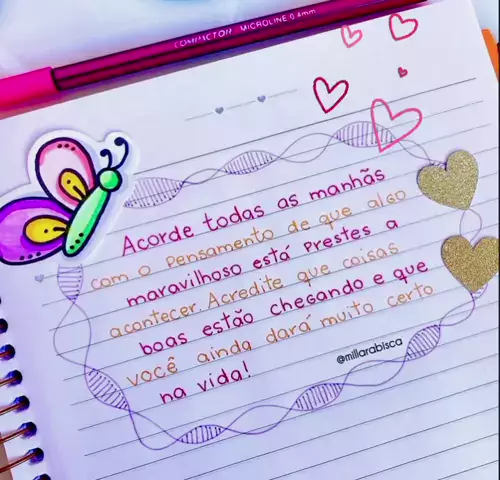 COMPACTOR MICROLINE 0.4mm
Acorde todas as manhãs
com o pensamento de que algo
maravilhoso está prestes a
acontecer. Acredite que coisas
boas estão chegando e que
você ainda dará muito certo
na vida!
@millarabisca